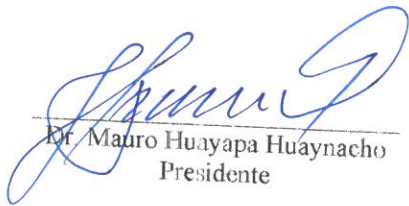 Dr. Mauro Huayapa Huaynacho
Presidente